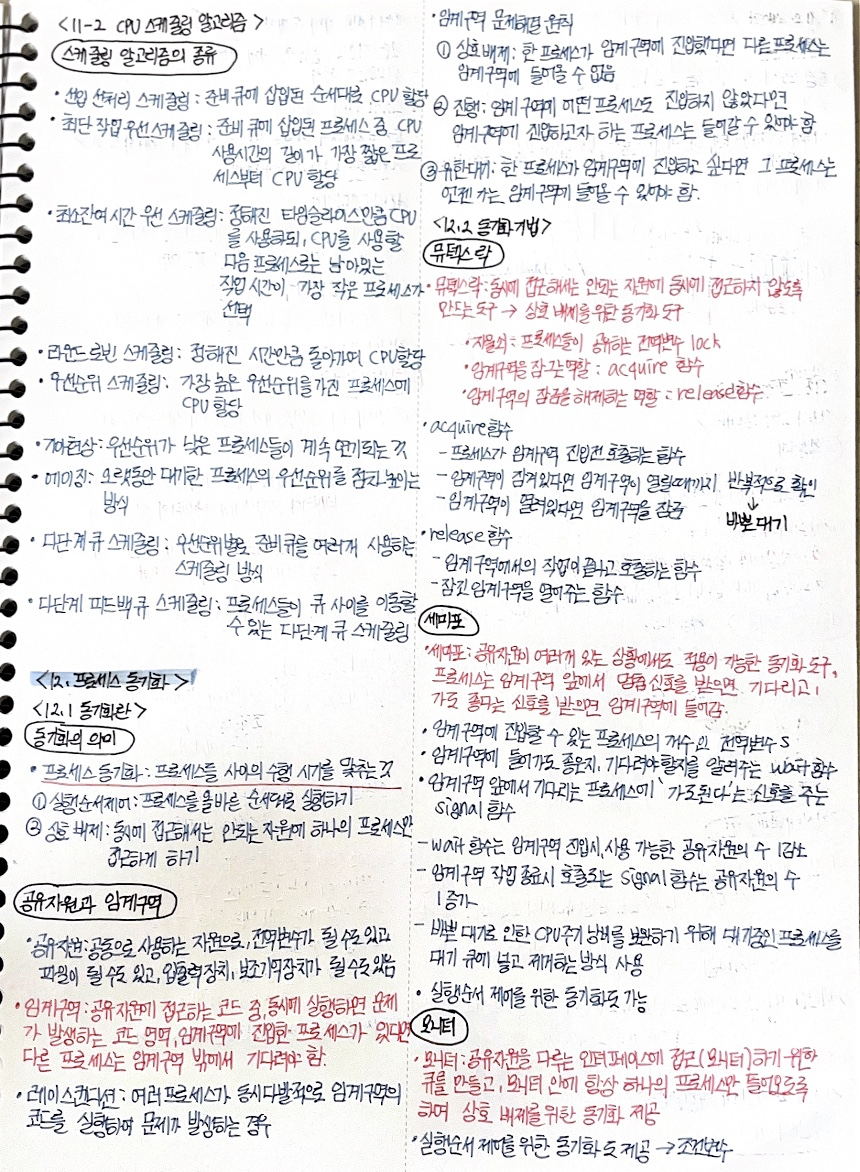 <11-2 CPU 스케줄링 알고리즘>
스케줄링 알고리즘의 종류
• 선입 선처리 스케줄링 : 준비 큐에 삽입된 순서대로 CPU 할당
• 최단 작업 우선 스케줄링 : 준비 큐에 삽입된 프로세스 중 CPU
사용시간의 길이가 가장 짧은 프로
세스부터 CPU 할당
• 최소 잔여 시간 우선 스케줄링 : 정해진 타임슬라이스만큼 CPU
를 사용하되, CPU를 사용할
다음 프로세스로는 남아있는
작업 시간이 가장 작은 프로세스가
선택
• 라운드 로빈 스케줄링 : 정해진 시간만큼 돌아가며 CPU할당
• 우선순위 스케줄링 : 가장 높은 우선순위를 가진 프로세스에
CPU 할당
• 기아현상 : 우선순위가 낮은 프로세스들이 계속 연기되는 것
• 에이징 : 오랫동안 대기한 프로세스의 우선순위를 점차 높이는
방식
• 다단계 큐 스케줄링 : 우선순위별로 준비 큐를 여러개 사용하는
스케줄링 방식
• 다단계 피드백 큐 스케줄링 : 프로세스들이 큐 사이를 이동할
수 있는 다단계 큐 스케줄링
<12. 프로세스 동기화>
<12.1 동기화란>
동기화의 의미
• 프로세스 동기화 : 프로세스들 사이의 수행 시기를 맞추는 것
① 실행순서제어 : 프로세스를 올바른 순서대로 실행하기
② 상호 배제 : 동시에 접근해서는 안되는 자원에 하나의 프로세스만
접근하게 하기
공유자원과 임계구역
• 공유자원 : 공동으로 사용하는 자원으로, 전역변수가 될 수도 있고
파일이 될 수도 있고, 입출력장치, 보조기억장치가 될 수도 있음
• 임계구역 : 공유자원에 접근하는 코드 중, 동시에 실행하면 문제
가 발생하는 코드 영역, 임계구역에 진입한 프로세스가 있다면
다른 프로세스는 임계구역 밖에서 기다려야 함.
• 레이스컨디션 : 여러 프로세스가 동시다발적으로 임계구역의
코드를 실행하여 문제가 발생하는 경우
• 임계구역 문제해결 원칙
① 상호배제 : 한 프로세스가 임계구역에 진입했다면 다른 프로세스는
임계구역에 들어올 수 없음
② 진행 : 임계구역에 어떤 프로세스도 진입하지 않았다면
임계구역에 진입하고자 하는 프로세스는 들어갈 수 있어야 함
③ 유한대기 : 한 프로세스가 임계구역에 진입하고 싶다면 그 프로세스는
언젠가는 임계구역에 들어올 수 있어야 함.
<12.2 동기화기법>
뮤텍스 락
• 뮤텍스락 : 동시에 접근해서는 안되는 자원에 동시에 접근하지 않도록
만드는 도구 → 상호 배제를 위한 동기화 도구
• 자물쇠 : 프로세스들이 공유하는 전역변수 lock
• 임계구역을 잠그는 역할 : acquire 함수
• 임계구역의 잠금을 해제하는 역할 : release 함수
• acquire 함수
- 프로세스가 임계구역 진입전 호출하는 함수
- 임계구역이 잠겨있다면 임계구역이 열릴때까지 반복적으로 확인
↓
바쁜 대기
- 임계구역이 열려있다면 임계구역을 잠금
• release 함수
- 임계구역에서의 작업이 끝나고 호출하는 함수
- 잠긴 임계구역을 열어주는 함수
세마포
• 세마포 : 공유자원이 여러개 있는 상황에서도 적용이 가능한 동기화 도구,
프로세스는 임계구역 앞에서 멈춤 신호를 받으면 기다리고,
가도 좋다는 신호를 받으면 임계구역에 들어감.
• 임계구역에 진입할 수 있는 프로세스의 개수인 전역변수 S
• 임계구역에 들어가도 좋은지, 기다려야 할지를 알려주는 wait 함수
• 임계구역 앞에서 기다리는 프로세스에 '가도된다'는 신호를 주는
signal 함수
- wait 함수는 임계구역 진입시, 사용 가능한 공유자원의 수 1감소
- 임계구역 작업 종료시 호출되는 signal 함수는 공유자원의 수
1증가
- 바쁜 대기로 인한 CPU주기 낭비를 보완하기 위해 대기중인 프로세스를
대기 큐에 넣고 제거하는 방식 사용
• 실행순서 제어를 위한 동기화도 가능
모니터
• 모니터 : 공유자원을 다루는 인터페이스에 접근(모니터)하기 위한
큐를 만들고, 모니터 안에 항상 하나의 프로세스만 들어오도록
하여 상호 배제를 위한 동기화 제공
• 실행순서 제어를 위한 동기화도 제공 → 조건변수